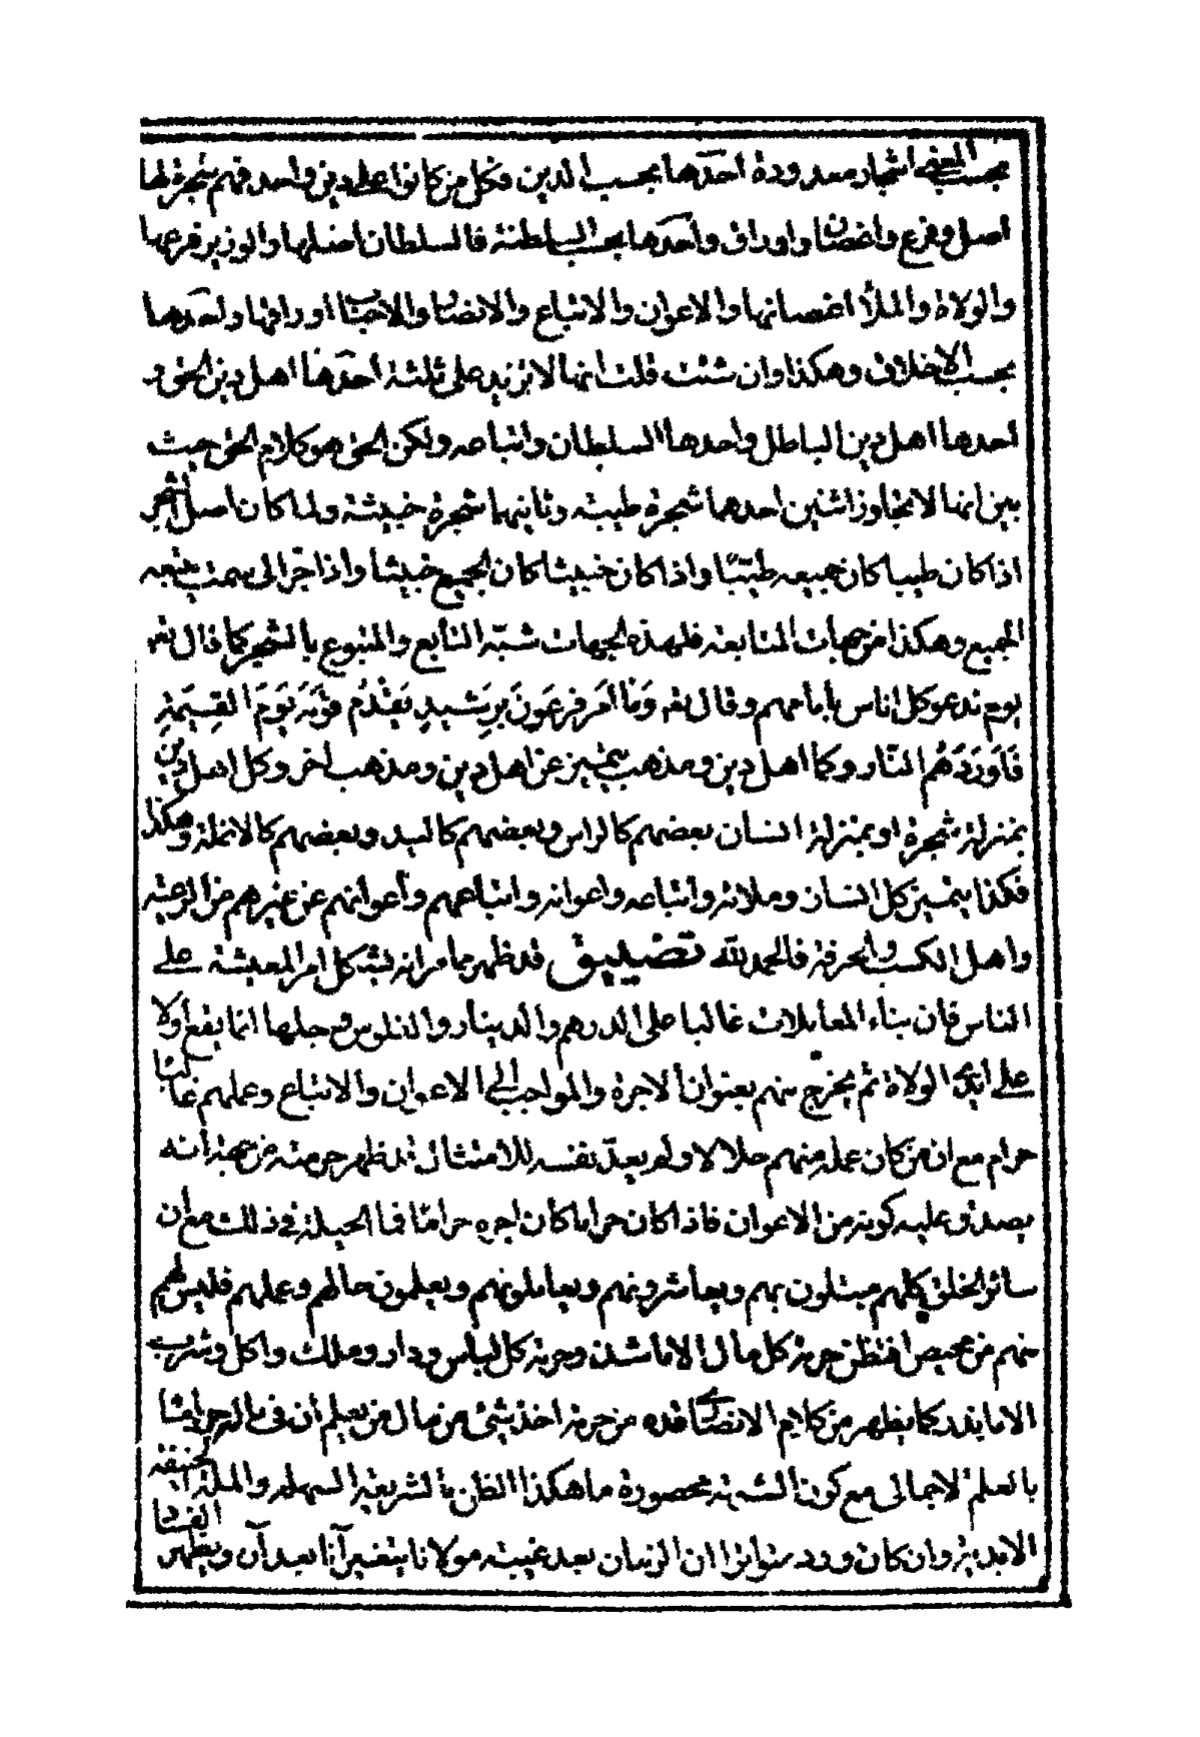 بحسب المعنى اشجار معدودة احدها بحسب الدين فكل من كانوا على دين واحد فهم شجرة لها
اصل وفرع واغصان واوراق واحدها بحسب السلطنة فالسلطان اصلها والوزير فرعها
والولاة والملأ اغصانها والاعوان والاتباع والانصار والاحباب اوراقها واحدها
بحسب الاخلاق وهكذا وان شئت قلت انها لا تزيد على ثلثة احدها اهل دين الحق و
احدها اهل دين الباطل واحدها السلطان واتباعه ولكن الحق هو كلام الحق حيث
بين انها لا تتجاوز اثنين احدهما شجرة طيبة وثانيهما شجرة خبيثة ولما كان اصل الشجر
اذا كان طيبا كان جميعه طيّبًا واذا كان خبيثا كان الجميع خبيثا واذا جرّ الى جهة يتبعه
الجميع وهكذا من جهات المتابعة فلهذه الجهات شبّه التابع والمتبوع بالشجر كما قال تعه
يوم ندعو كل اناس بامامهم وقال تعه وَمَا اَمر فرعَونَ بِرَشيدٍ يَقْدُمُ قَوْمَه يَوْمَ القِيٰمَةِ
فَاَورَدَهُم النّار وكما اهل دين ومذهب يتميز عن اهل دين ومذهب اخر وكل اهل دين
بمنزلة شجرة او بمنزلة انسان بعضهم كالراس وبعضهم كاليد وبعضهم كالانملة وهكذا
فكذا يتميز كل انسان وملائه واتباعه واعوانه واتباعهم وأعوانهم عن غيرهم من الرعية
واهل الكسب والحرفة فالحمد لله تضييق قد ظهر مما مر انه يشكل امر المعيشة على
الناس فان بناء المعاملات غالبا على الدرهم والدينار والفلوس وجلها انما يقع اولا
على ايدى الولاة ثم يخرج منهم بعنوان الاجرة والمواجب الى الاعوان والاتباع وعملهم غالبا
حرام مع ان من كان عمله منهم حلالا ولو يعدّ نفسه للامتثال قد ظهر حرمته من جهة أنه
يصدق عليه كونه من الاعوان فاذا كان حراما كان اجره حرامًا فما الحيلة فى ذلك مع ان
سائر الخلق كلهم مبتلون بهم ويعاشرونهم ويعاملونهم ويعلمون حالهم وعملهم فليس لهم
منهم من محيص افتظن حرمة كل مال الا ما شذ وحرمة كل لباس ودار وملك واكل وشرب
الا ما يندر كما يظهر من كلام الانصارى قده من حرمة اخذ شئ من مال من يعلم ان فى ماله حراما
بالعلم الاجمالى مع كون الشبهة محصورة ما هكذا الظن بالشريعة السهلة والملة الحنيفة
الابدية وان كان ورد متواترا ان الزمان بعد غيبة مولانا يتغير آنا بعد آن ويظهر الفساد